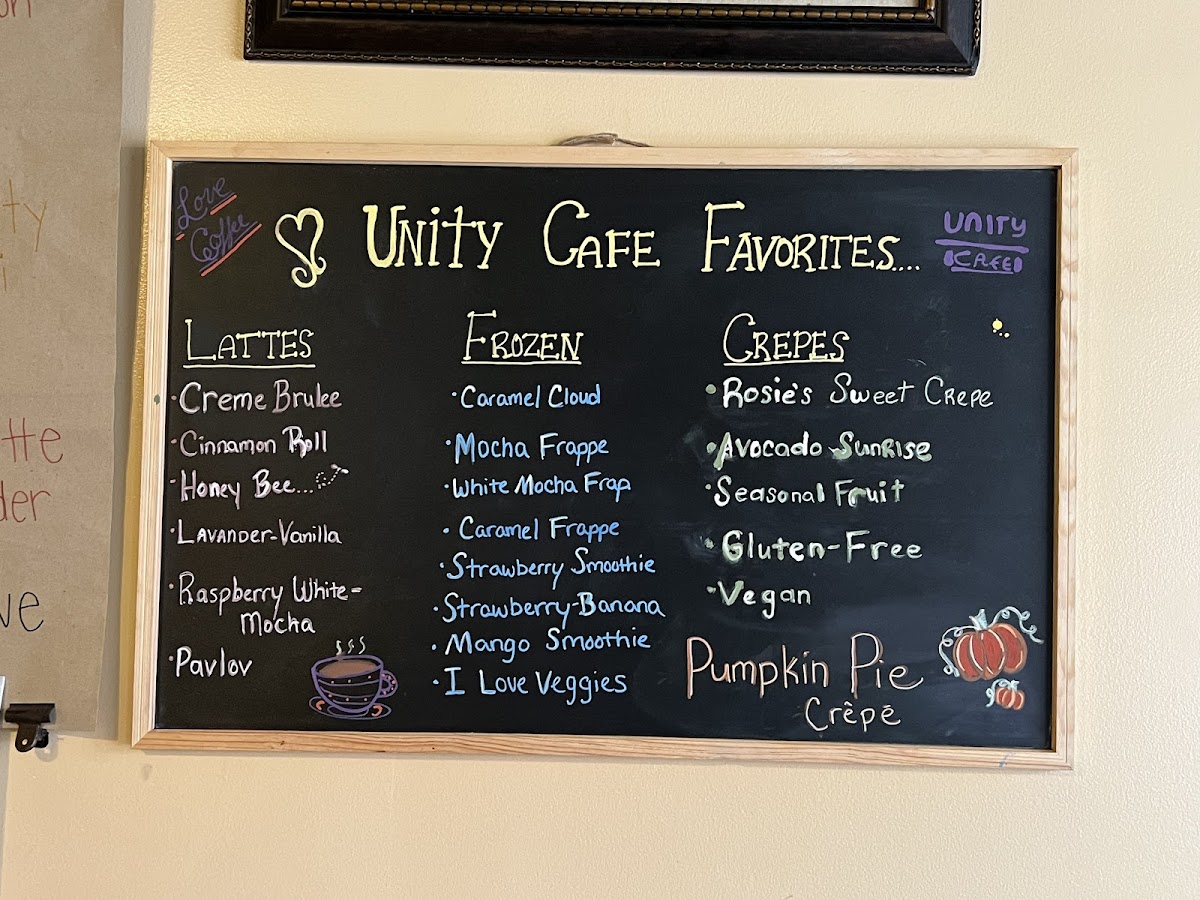 Love
Coffee
Unity Cafe Favorites....
UNITY
CAFE
Lattes
·Creme Brulee
·Cinnamon Roll
·Honey Bee...
·Lavander-Vanilla
·Raspberry White-
Mocha
·Pavlov
Frozen
·Caramel Cloud
·Mocha Frappe
·White Mocha Frap
·Caramel Frappe
·Strawberry Smoothie
·Strawberry-Banana
·Mango Smoothie
·I Love Veggies
Crepes
·Rosie's Sweet Crepe
·Avocado-Sunrise
·Seasonal Fruit
·Gluten-Free
·Vegan
Pumpkin Pie
Crêpé